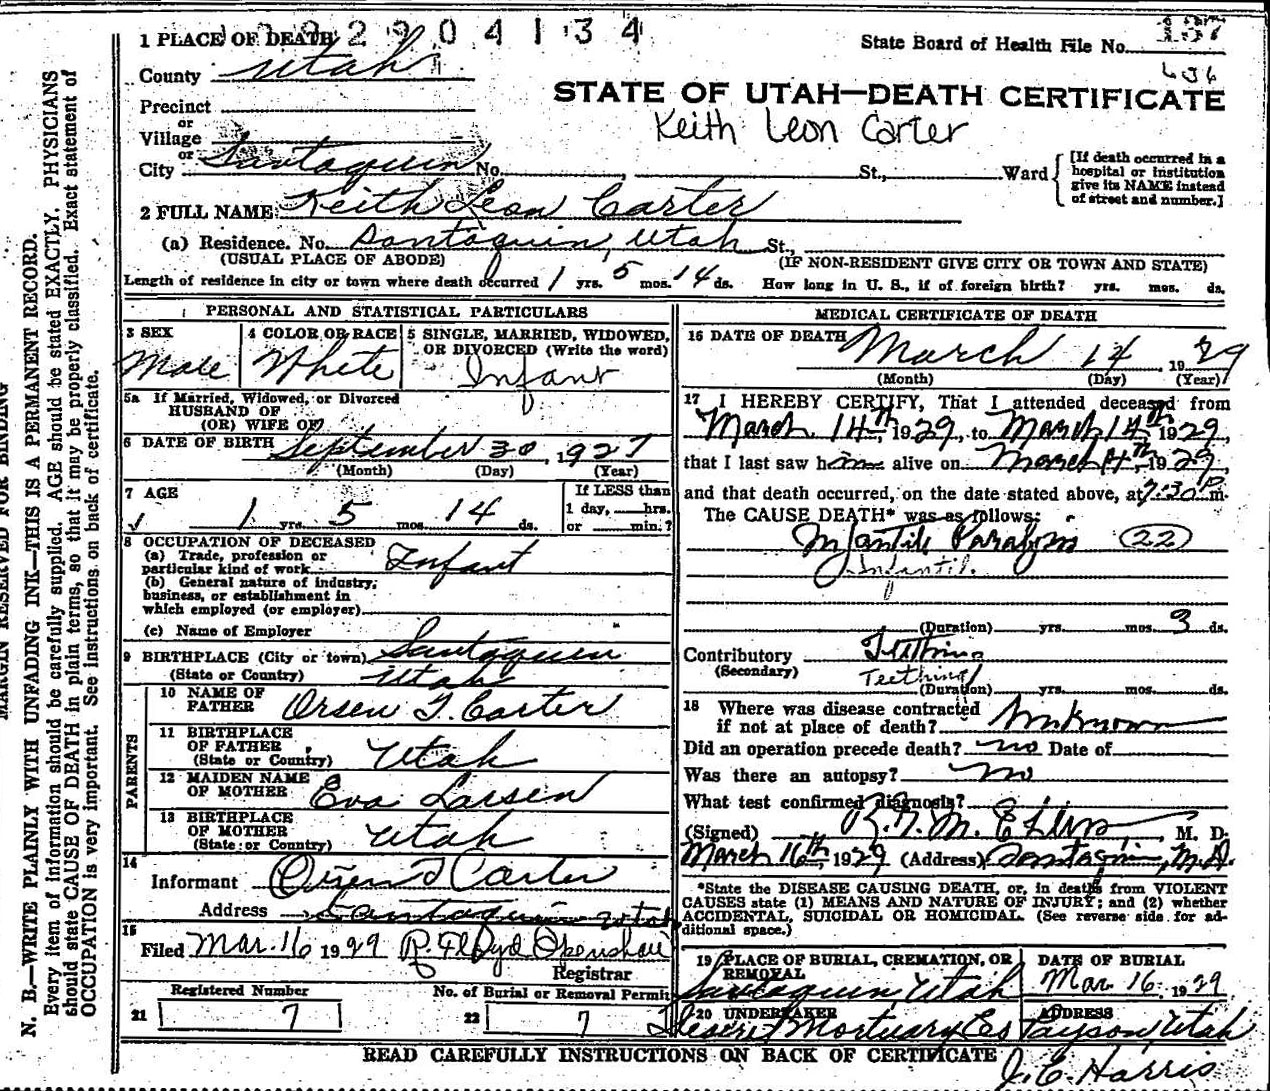 2904134
1 PLACE OF DEATH
State Board of Health File No.
County Utah
STATE OF UTAH—DEATH CERTIFICATE
Precinct
or
Keith Leon Carter
Village
or
City Santaquin No. , St., Ward
[If death occurred in a
hospital or institution
give its NAME instead
of street and number.]
2 FULL NAME Keith Leon Carter
(a) Residence. No. Santaquin, Utah St.,
(USUAL PLACE OF ABODE) (IF NON-RESIDENT GIVE CITY OR TOWN AND STATE)
Length of residence in city or town where death occurred 1 yrs. 5 mos. 14 ds. How long in U. S., if of foreign birth? yrs. mos. ds.
PERSONAL AND STATISTICAL PARTICULARS
3 SEX
Male
4 COLOR OR RACE
White
5 SINGLE, MARRIED, WIDOWED,
OR DIVORCED (Write the word)
Infant
5a If Married, Widowed, or Divorced
HUSBAND OF
(OR) WIFE OF
6 DATE OF BIRTH September 30, 1927
(Month) (Day) (Year)
7 AGE
1 yrs. 5 mos. 14 ds.
If LESS than
1 day, hrs.
or min.?
8 OCCUPATION OF DECEASED
(a) Trade, profession or
particular kind of work Infant
(b) General nature of industry,
business, or establishment in
which employed (or employer)
(c) Name of Employer
9 BIRTHPLACE (City or town) Santaquin
(State or Country) Utah
PARENTS
10 NAME OF
FATHER Orsen T. Carter
11 BIRTHPLACE
OF FATHER
(State or Country) Utah
12 MAIDEN NAME
OF MOTHER Eva Larsen
13 BIRTHPLACE
OF MOTHER
(State or Country) Utah
14
Informant Orsen T Carter
Address Santaquin Utah
15
Filed Mar. 16 1929 R. Floyd Openshaw
Registrar
Registered Number No. of Burial or Removal Permit
21 7 22 7
MEDICAL CERTIFICATE OF DEATH
16 DATE OF DEATH March 14 1929
(Month) (Day) (Year)
17 I HEREBY CERTIFY, That I attended deceased from
March 14th, 1929, to March 14th 1929,
that I last saw him alive on March 14th, 1929,
and that death occurred, on the date stated above, at 7:30 P m.
The CAUSE DEATH* was as follows:
Infantile Paralysis (22)
Infantil.
(Duration) yrs. mos. 3 ds.
Contributory Teething
(Secondary) Teething
(Duration) yrs. mos. ds.
18 Where was disease contracted
if not at place of death? Unknown
Did an operation precede death? no Date of
Was there an autopsy? no
What test confirmed diagnosis?
(Signed) , M. D.
March 16th, 1929 (Address) Santaquin,
*State the DISEASE CAUSING DEATH, or, in deaths from VIOLENT
CAUSES state (1) MEANS AND NATURE OF INJURY; and (2) whether
ACCIDENTAL, SUICIDAL OR HOMICIDAL. (See reverse side for ad-
ditional space.)
19 PLACE OF BURIAL, CREMATION, OR
REMOVAL
Santaquin Utah
DATE OF BURIAL
Mar 16. 1929
20 UNDERTAKER
Deseret Mortuary Co
ADDRESS
Payson, Utah
READ CAREFULLY INSTRUCTIONS ON BACK OF CERTIFICATE
J. E. Harris
MARGIN RESERVED FOR BINDING
N. B.—WRITE PLAINLY WITH UNFADING INK—THIS IS A PERMANENT RECORD.
Every item of information should be carefully supplied. AGE should be stated EXACTLY. PHYSICIANS
should state CAUSE OF DEATH in plain terms, so that it may be properly classified. Exact statement of
OCCUPATION is very important. See instructions on back of certificate.